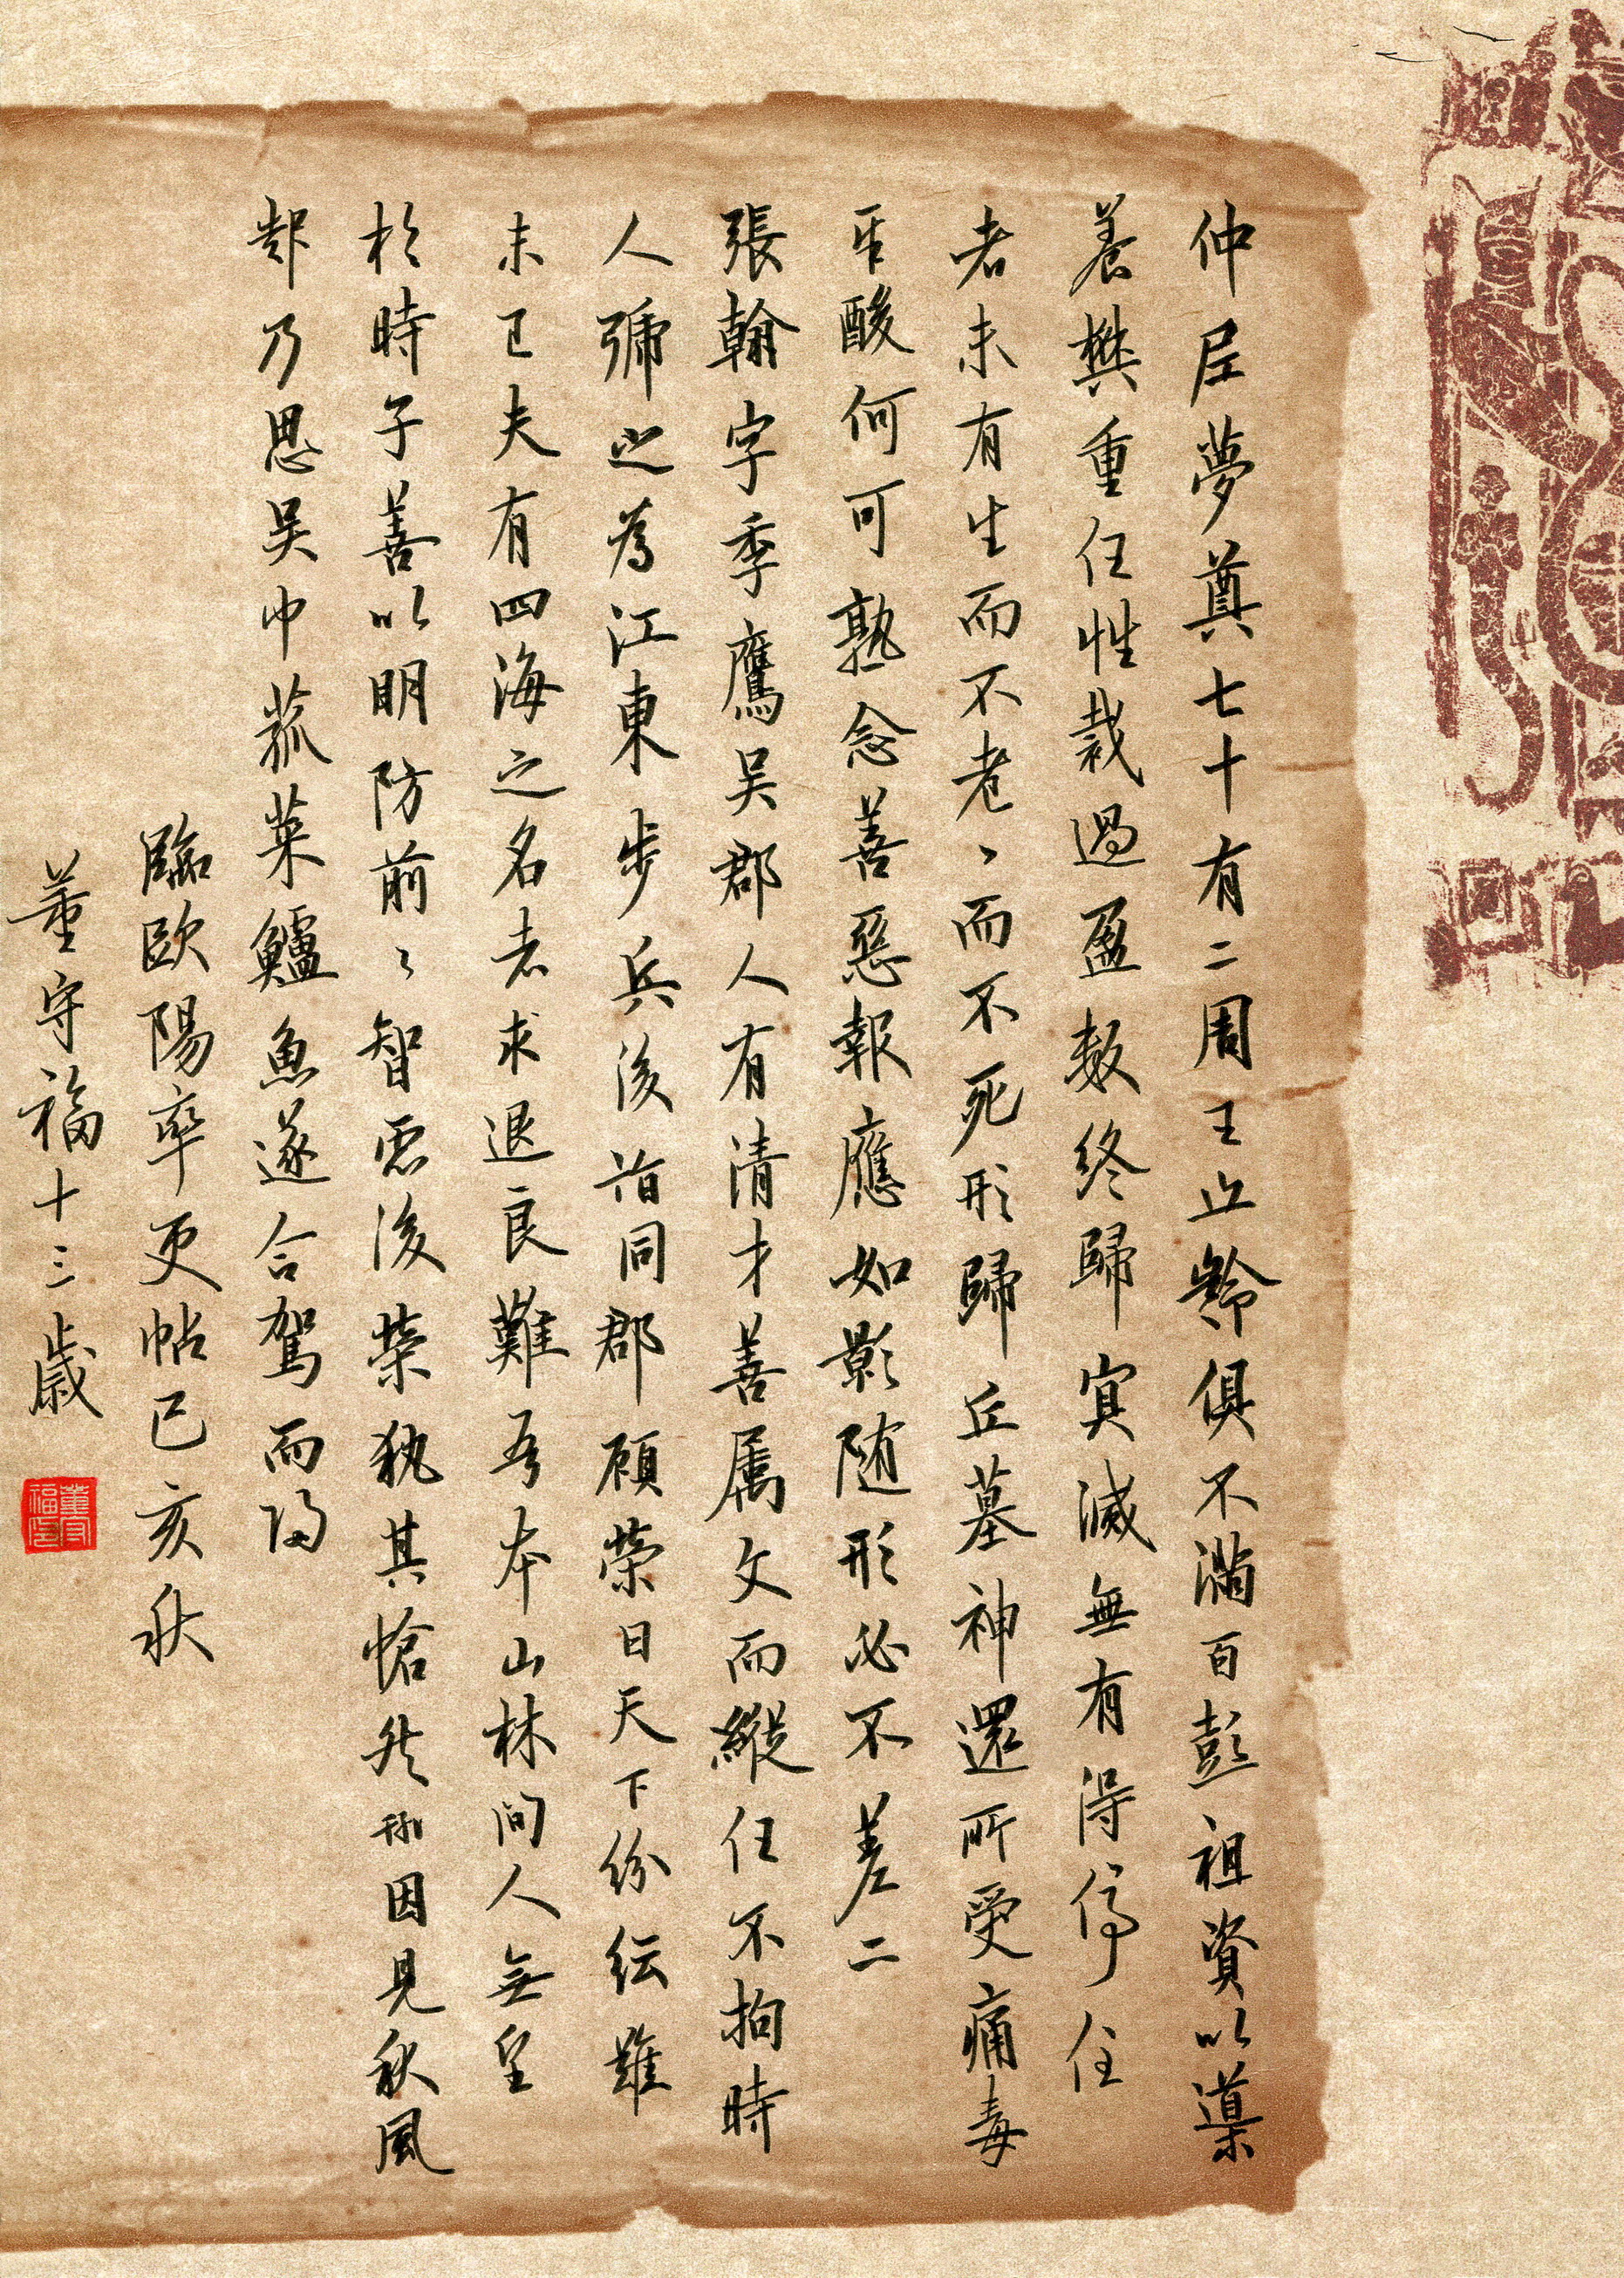 仲尼夢奠七十有二周王九齡俱不滿百彭祖資以導
養樊重任性裁過盈數終歸冥滅無有得停住
者未有生而不老〻而不死形歸丘墓神還所受痛毒
辛酸何可熟念善惡報應如影随形必不差二
張翰字季鷹吴郡人有清才善属文而縱任不拘時
人號之為江東步兵後謂同郡顧榮曰天下紛纭難
未已夫有四海之名者求退良難吾本山林間人無望
於時子善以明防前〻智慮後榮執其愴然翰因見秋風
起乃思吴中菰菜鱸魚遂命駕而歸
臨歐陽率更帖己亥秋
董守福十三歲
董守福印